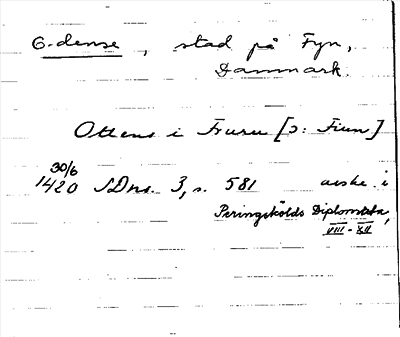 O-dense, stad på Fyn,
Danmark.
Ottens i Fruru [ɔ: Fiun]
30/6
1420 SDns. 3, s. 581 avskr. i
Peringskölds Diplomataria,
VIII - XII